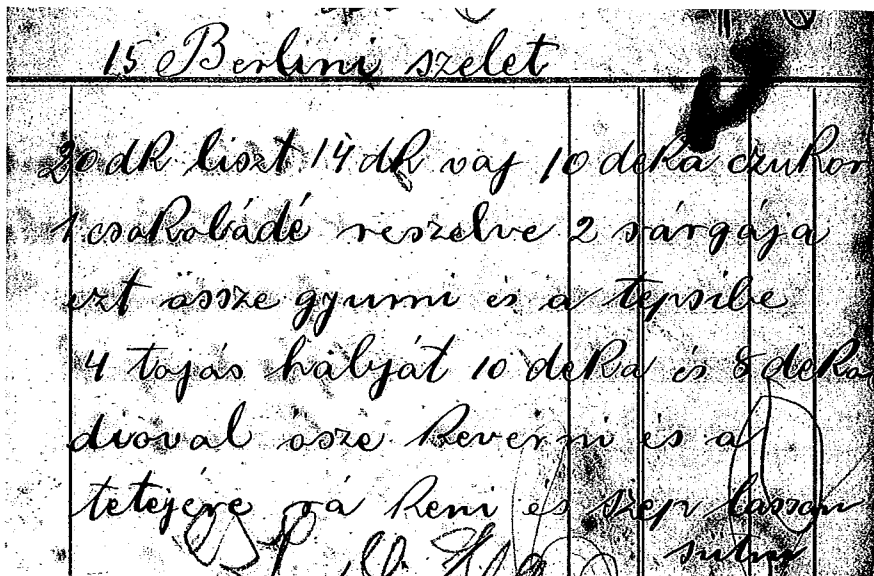 15 Berlini szelet
20 dk liszt 14 dk vaj 10 deka czukor
1 csokoládé reszelve 2 sárgája
ezt össze gyurni és a tepsibe
4 tojás hályát 10 deka és 8 deka
dioval ösze keverni és a
tetejére rá keni és szép lassan
sütni